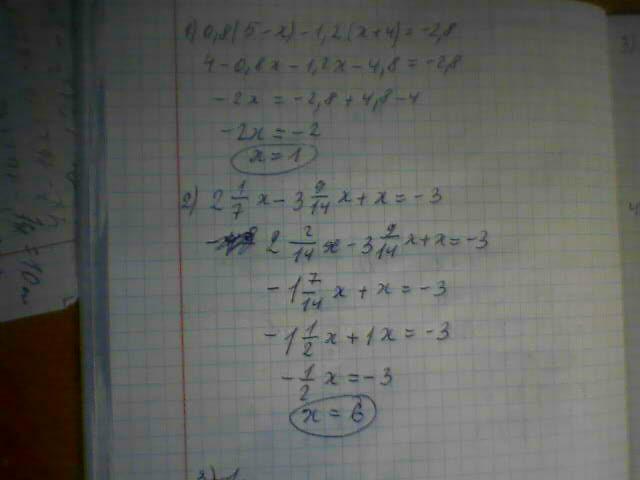 1) 0,8(5-x)-1,2(x+4)=-2,8
4-0,8x-1,2x-4,8=-2,8
-2x=-2,8+4,8-4
-2x=-2
x=1
2) 2 1/7 x - 3 9/14 x + x = -3
2 2/14 x - 3 9/14 x + x = -3
-1 7/14 x + x = -3
-1 1/2 x + 1x = -3
-1/2 x = -3
x = 6
3)
4)